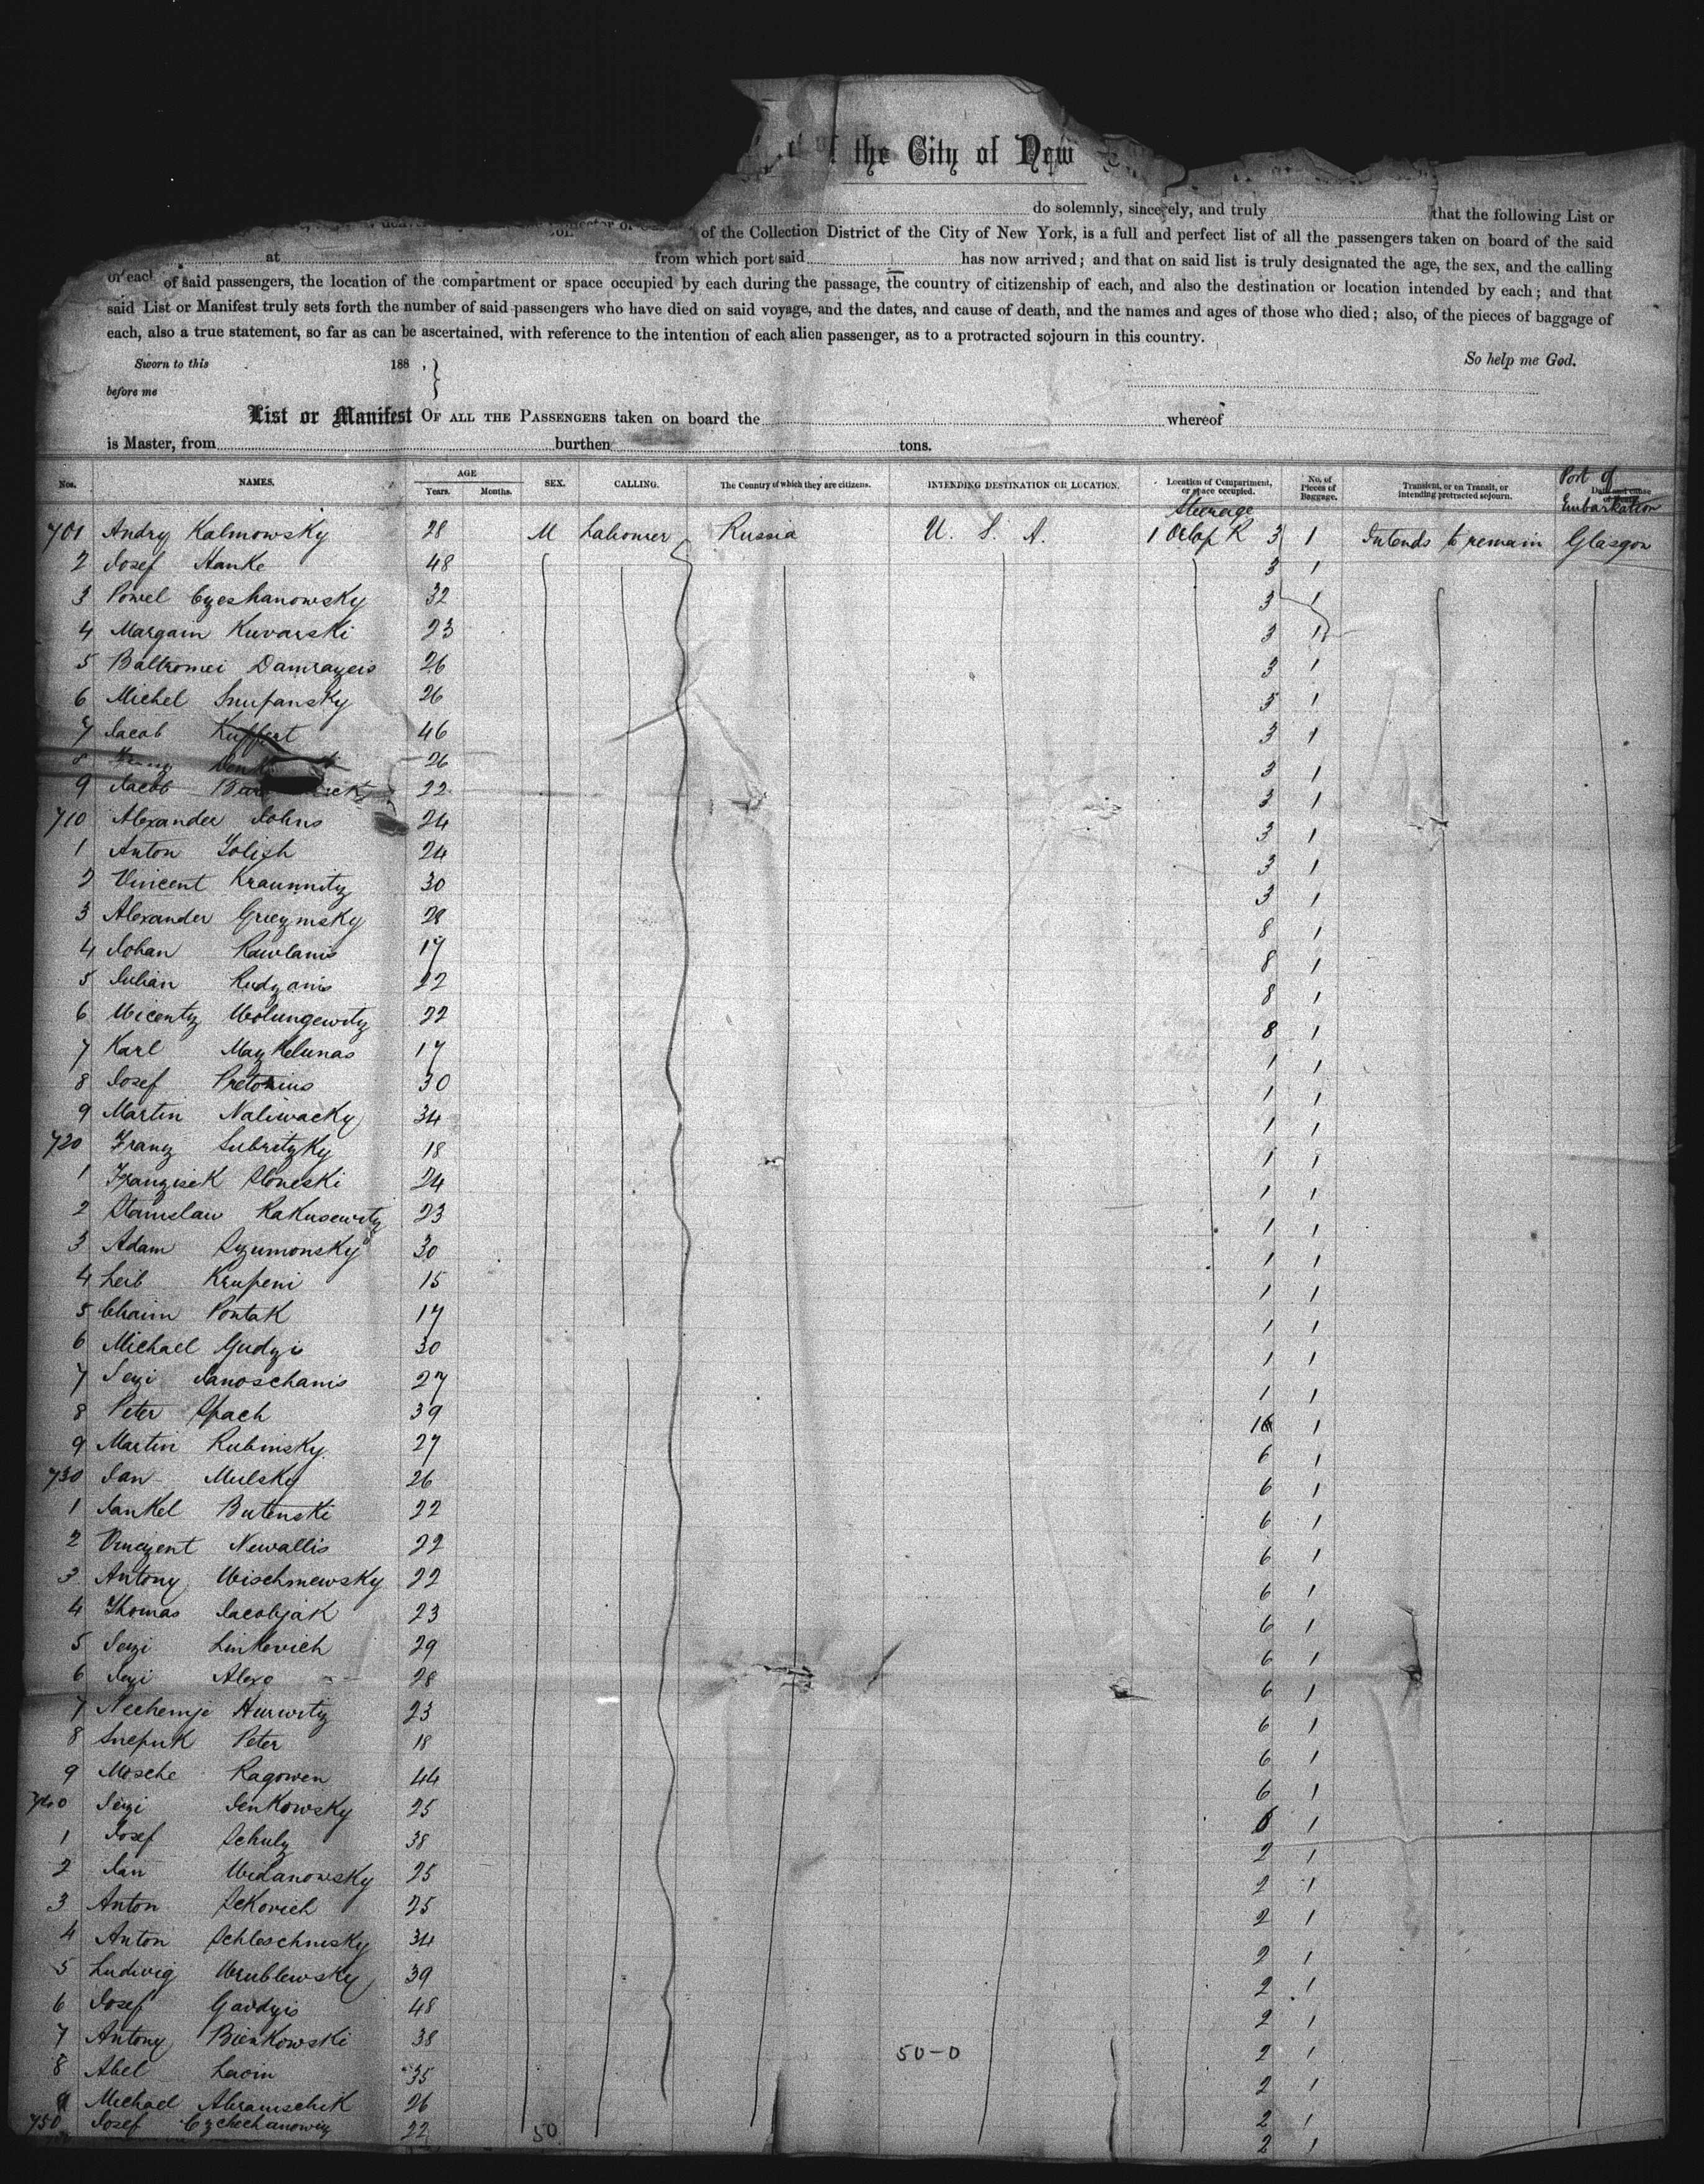 of the City of New
do solemnly, sincerely, and truly that the following List or
of the Collection District of the City of New York, is a full and perfect list of all the passengers taken on board of the said
at from which port said has now arrived; and that on said list is truly designated the age, the sex, and the calling
of said passengers, the location of the compartment or space occupied by each during the passage, the country of citizenship of each, and also the destination or location intended by each; and that
said List or Manifest truly sets forth the number of said passengers who have died on said voyage, and the dates, and cause of death, and the names and ages of those who died; also, of the pieces of baggage of
each, also a true statement, so far as can be ascertained, with reference to the intention of each alien passenger, as to a protracted sojourn in this country.
Sworn to this 188 , So help me God.
before me
List or Manifest OF ALL THE PASSENGERS taken on board the whereof
is Master, from burthen tons.
Nos. NAMES. AGE Years. Months. SEX. CALLING. The Country of which they are citizens. INTENDING DESTINATION OR LOCATION. Location of Compartment, or space occupied. No. of Pieces of Baggage. Transient, or on Transit, or intending protracted sojourn. Port of Embarkation
Steerage
701 Andry Kalmowsky 28 M Labourer Russia U. S. A. 1 Orlop R 3 1 Intends to remain Glasgow
2 Josef Hanke 48 3 1
3 Powel Czeshanowsky 32 3 1
4 Margain Kuvarski 23 3 1
5 Baltromei 26 3 1
6 Michel Snupansky 26 3 1
7 Jacob Kuffert 46 3 1
8 26 3 1
9 Jacob 22 3 1
710 Alexander Johns 24 3 1
1 Anton Yolish 24 3 1
2 Vincent Kraunnitz 30 3 1
3 Alexander Griezmsky 28 8 1
4 Johan Rawlanis 17 8 1
5 Julian Rudzanis 22 8 1
6 Wicenty Wolungewitz 22 8 1
7 Karl Mazkelunas 17 1 1
8 Josef Pretorius 30 1 1
9 Martin Naliwacky 34 1 1
720 Franz Subritzky 18 1 1
1 Franzisek Sloneski 24 1 1
2 Stanislaw Rakusewitz 23 1 1
3 Adam Szumonsky 30 1 1
4 Leib Krupeni 15 1 1
5 Chaim Pontak 17 1 1
6 Michael Gudzis 30 1 1
7 Janoschanis 27 1 1
8 Peter Spach 39 1 1
9 Martin Rubinsky 27 6 1
730 Jan Mulsky 26 6 1
1 Jankel Butenski 22 6 1
2 Vinczent Newallis 22 6 1
3 Antony Wischnewsky 22 6 1
4 Thomas Jacobjak 23 6 1
5 Linkevich 29 6 1
6 Alexo 28 6 1
7 Nechemje Hurwitz 23 6 1
8 Snepuk Peter 18 6 1
9 Mosche Ragowen 44 6 1
740 Jenkowsky 25 1
1 Josef Schulz 38 2 1
2 Jan Widanowsky 25 2 1
3 Anton Sekovich 25 2 1
4 Anton Schleschnisky 34 2 1
5 Ludwig Wrublewsky 39 2 1
6 Josef Gavdzis 48 2 1
7 Antony Bienkowski 38 50-0 2 1
8 Abel Levin 35 2 1
9 Michael Abramschik 26 2 1
750 Josef Czchechanowiz 22 50 2 1